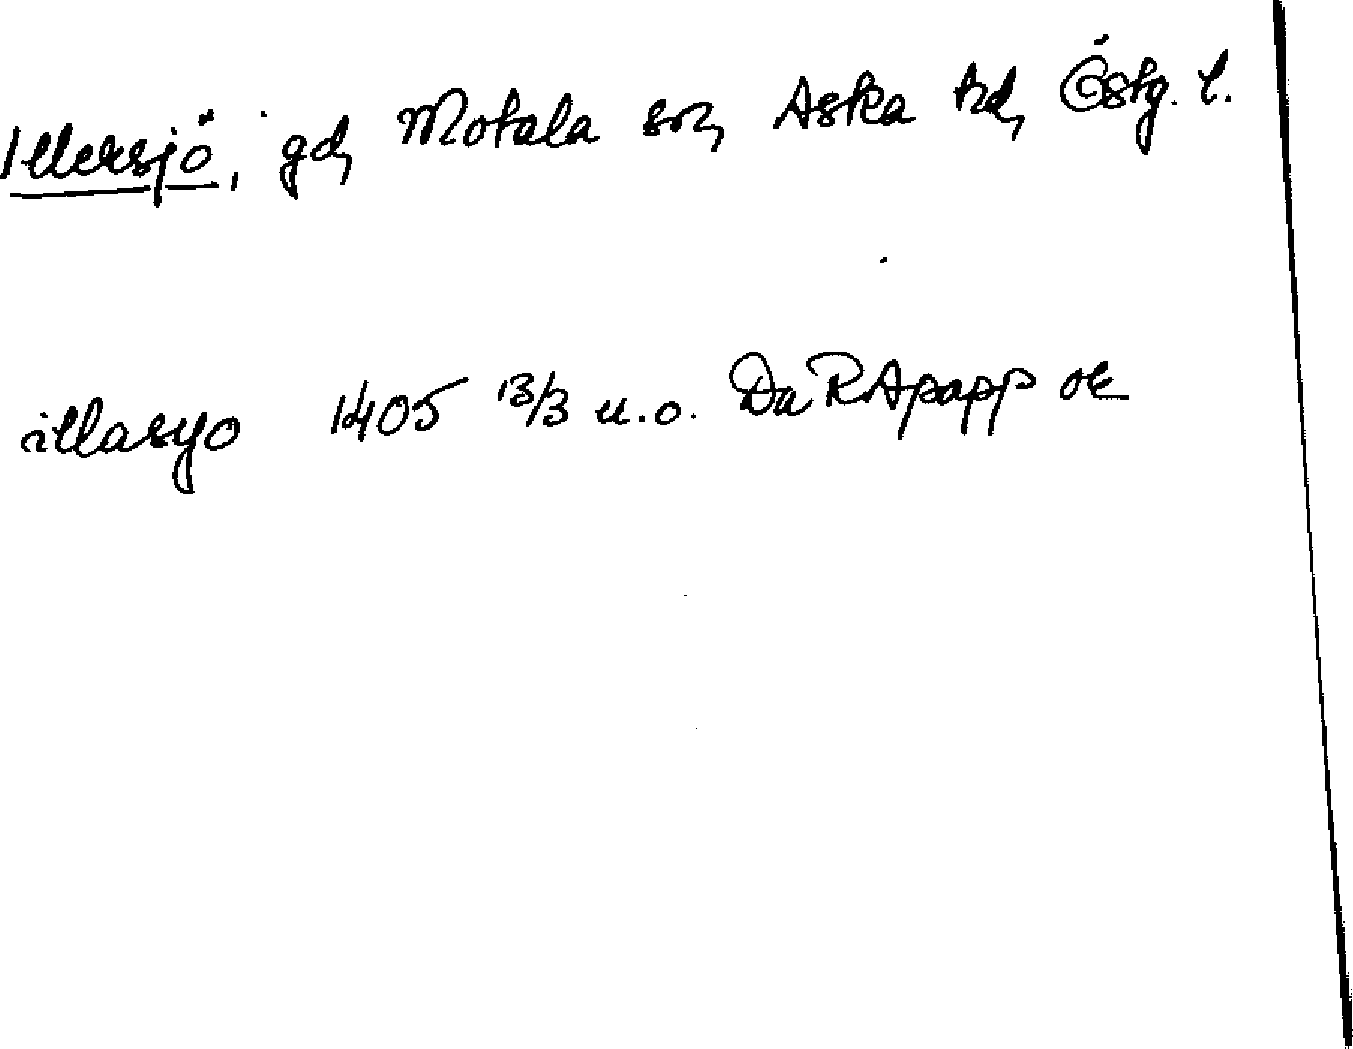 Illersjö, gd, Motala sn, Aska hd, Östg. l.
illasyo 1405 13/3 u.o. Da RApapp or